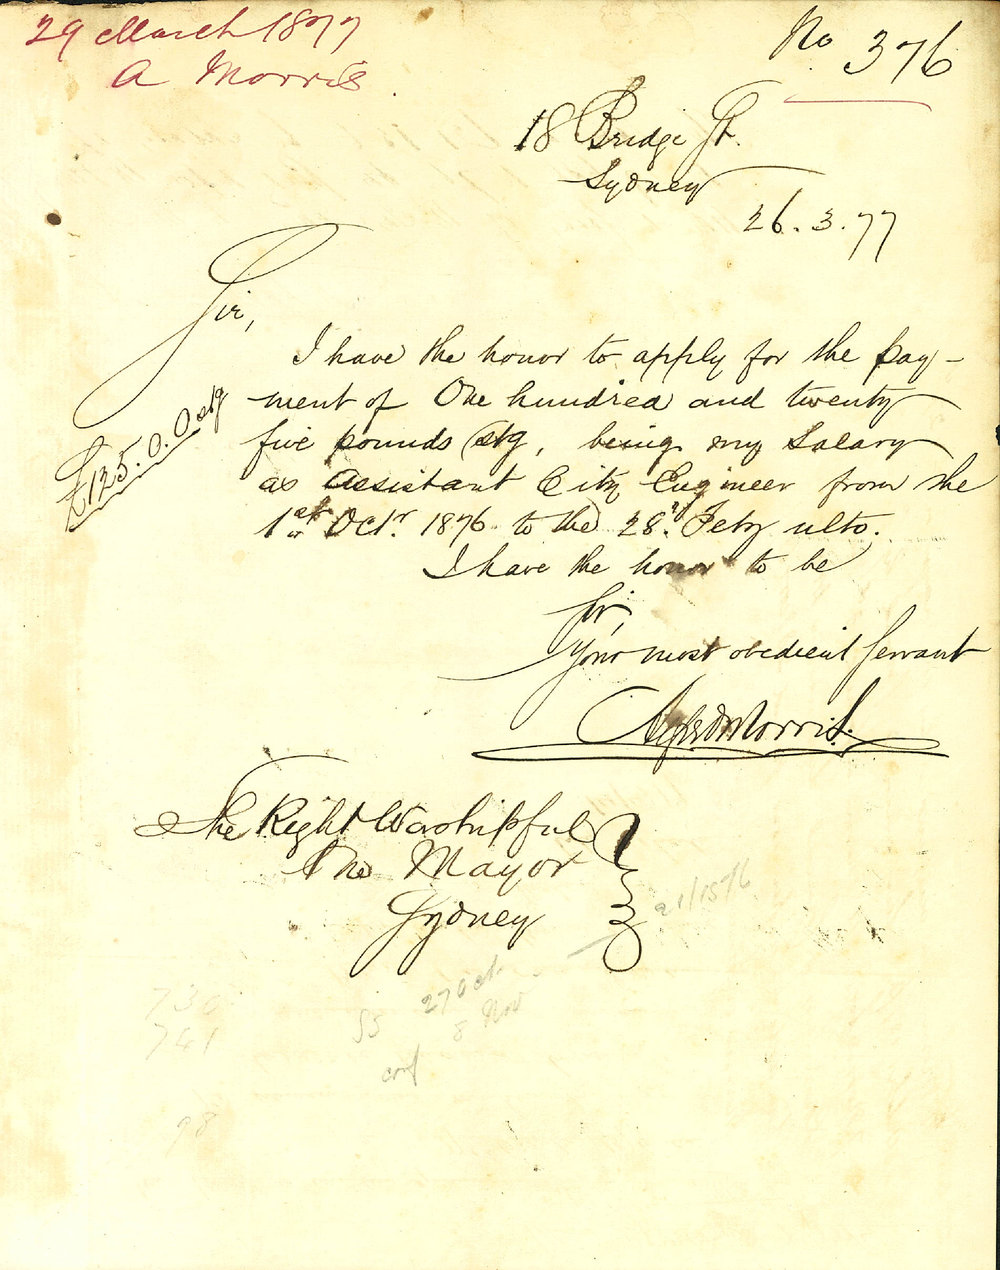 29 March 1877
A Morris
No 376
18 Bridge St.
Sydney
26.3.77
Sir,
I have the honor to apply for the pay-
ment of One hundred and twenty
five pounds stg, being my Salary
as Assistant City Engineer from the
1st Octr. 1876 to the 28th Feby ulto.
£125.0.0 stg
I have the honor to be
Sir,
Your most obedient Servant
Alfred Morris.
The Right Worshipful
The Mayor
Sydney
21/1576
27 Oct
8 Nov
730
741
98